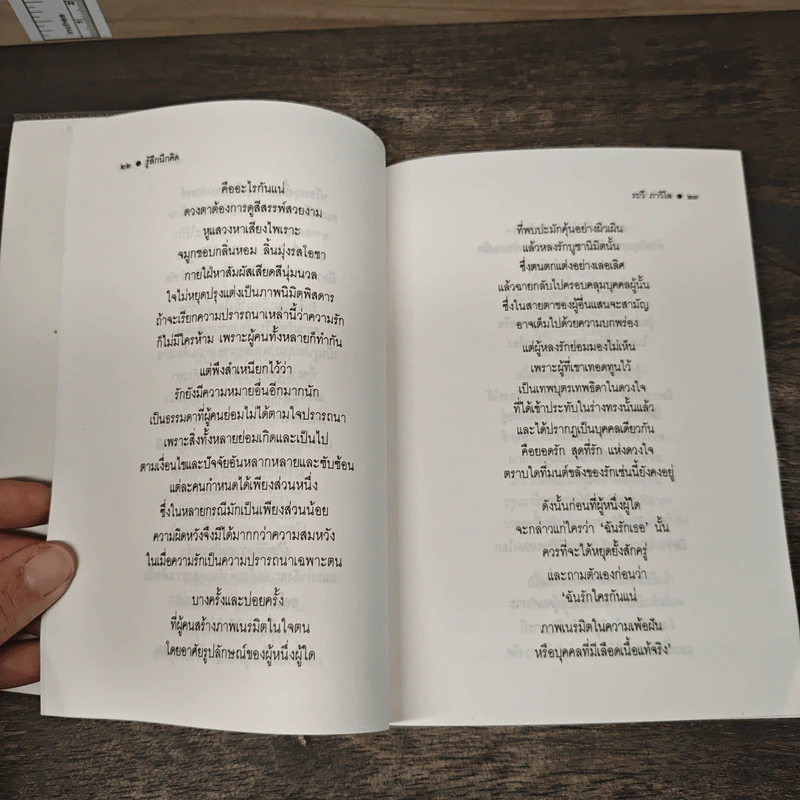 ๒๒ ● รู้สึกนึกคิด
คืออะไรกันแน่
ดวงตาต้องการดูสีสรรพ์สวยงาม
หูแสวงหาเสียงไพเราะ
จมูกชอบกลิ่นหอม ลิ้นมุ่งรสโอชา
กายใฝ่หาสัมผัสเสียดสีนุ่มนวล
ใจไม่หยุดปรุงแต่งเป็นภาพนิมิตพิสดาร
ถ้าจะเรียกความปรารถนาเหล่านี้ว่าความรัก
ก็ไม่มีใครห้าม เพราะผู้คนทั้งหลายก็ทำกัน
แต่พึงสำเหนียกไว้ว่า
รักยังมีความหมายอื่นอีกมากนัก
เป็นธรรมดาที่ผู้คนย่อมไม่ได้ตามใจปรารถนา
เพราะสิ่งทั้งหลายย่อมเกิดและเป็นไป
ตามเงื่อนไขและปัจจัยอันหลากหลายและซับซ้อน
แต่ละคนกำหนดได้เพียงส่วนหนึ่ง
ซึ่งในหลายกรณีมักเป็นเพียงส่วนน้อย
ความผิดหวังจึงมีได้มากกว่าความสมหวัง
ในเมื่อความรักเป็นความปรารถนาเฉพาะตน
บางครั้งและบ่อยครั้ง
ที่ผู้คนสร้างภาพเนรมิตในใจตน
โดยอาศัยรูปลักษณ์ของผู้หนึ่งผู้ใด
ระวี ภาวิไล ● ๒๓
ที่พบปะมักคุ้นอย่างผิวเผิน
แล้วหลงรักบูชานิมิตนั้น
ซึ่งตนตกแต่งอย่างเลอเลิศ
แล้วฉายกลับไปครอบคลุมบุคคลผู้นั้น
ซึ่งในสายตาของผู้อื่นแสนจะสามัญ
อาจเต็มไปด้วยความบกพร่อง
แต่ผู้หลงรักย่อมมองไม่เห็น
เพราะผู้ที่เขาเทอดทูนไว้
เป็นเทพบุตรเทพธิดาในดวงใจ
ที่ได้เข้าประทับในร่างทรงนั้นแล้ว
และได้ปรากฏเป็นบุคคลเดียวกัน
คือยอดรัก สุดที่รัก แห่งดวงใจ
ตราบใดที่มนต์ขลังของรักเช่นนี้ยังคงอยู่
ดังนั้นก่อนที่ผู้หนึ่งผู้ใด
จะกล่าวแก่ใครว่า ‘ฉันรักเธอ’ นั้น
ควรที่จะได้หยุดยั้งสักครู่
และถามตัวเองก่อนว่า
‘ฉันรักใครกันแน่
ภาพเนรมิตในความเพ้อฝัน
หรือบุคคลที่มีเลือดเนื้อแท้จริง’